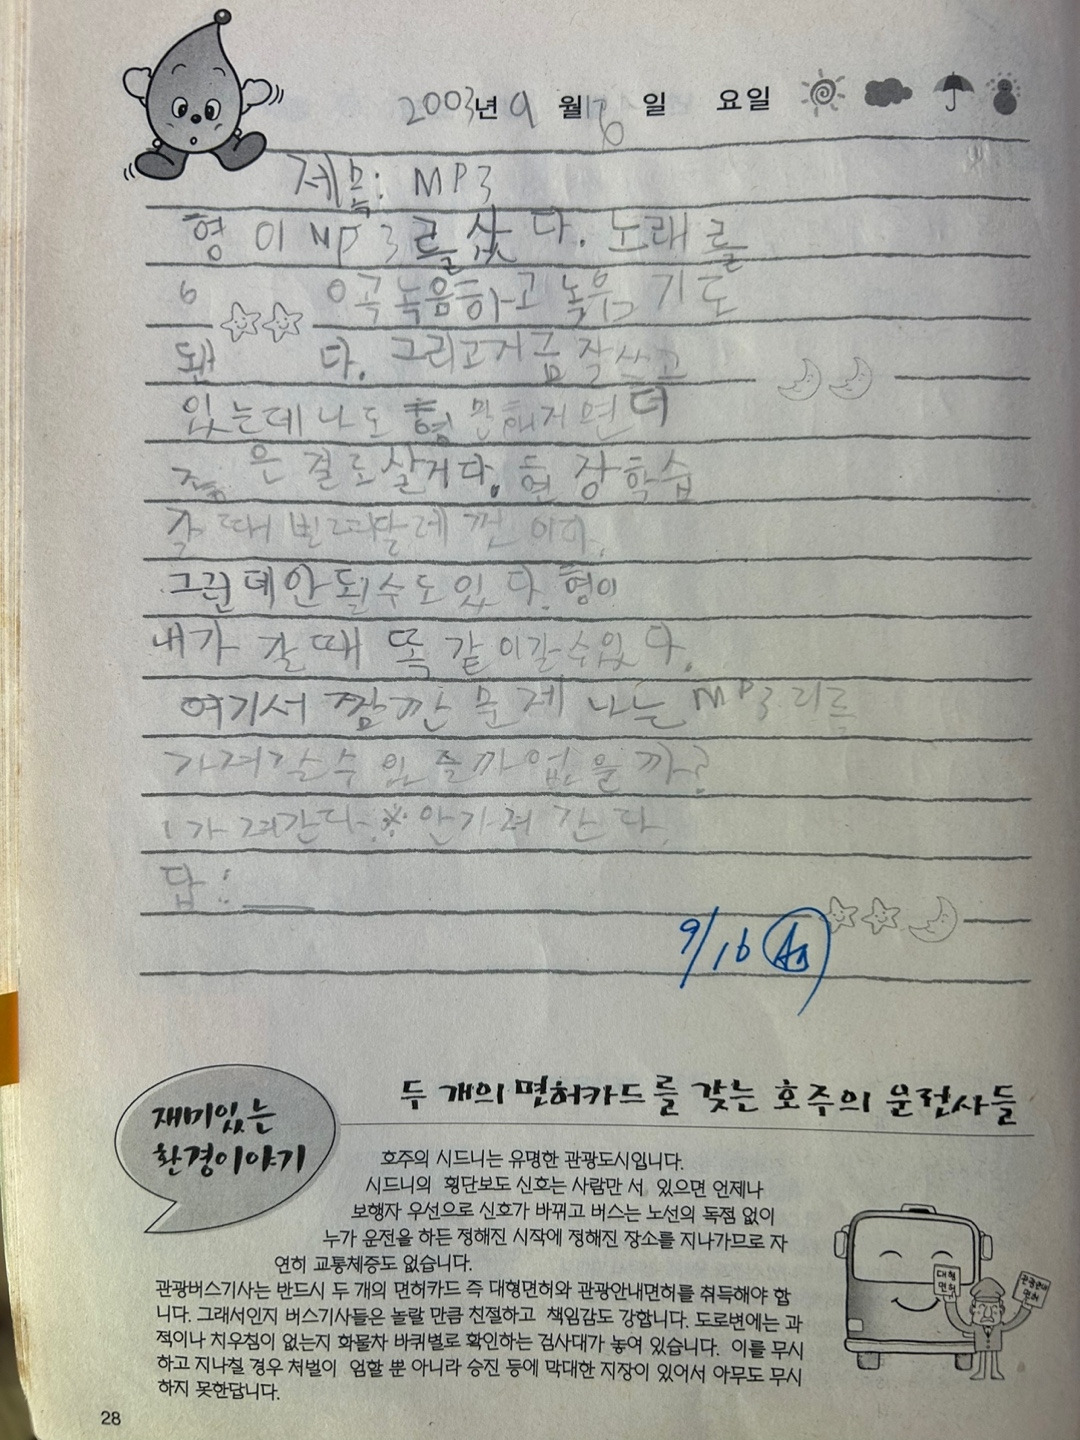 2003년 9월 16일 요일
제목: MP3
형이 MP3를 샀다. 노래를
60곡 녹음하고 녹음기도
됀다. 그리고 지금 잘쓰고
있는데 나도 형 만해지면 더
좋은 걸로 살거다. 현장학습
갈 때 빌려달레 껀이다.
그런데 안 될수도 있다. 형이
내가 갈 때 똑같이 갈수있다.
여기서 짬깐 문제 나는 MP3
가져갈 수 있을까 없을까?
1 가져간다. ※ 안가져 간다.
답:
9/16
재미있는
환경이야기
두 개의 면허카드를 갖는 호주의 운전사들
호주의 시드니는 유명한 관광도시입니다.
시드니의 횡단보도 신호는 사람만 서 있으면 언제나
보행자 우선으로 신호가 바뀌고 버스는 노선의 독점 없이
누가 운전을 하든 정해진 시작에 정해진 장소를 지나가므로 자
연히 교통체증도 없습니다.
관광버스기사는 반드시 두 개의 면허카드 즉 대형면허와 관광안내면허를 취득해야 합
니다. 그래서인지 버스기사들은 놀랄 만큼 친절하고 책임감도 강합니다. 도로변에는 과
적이나 치우침이 없는지 화물차 바퀴별로 확인하는 검사대가 놓여 있습니다. 이를 무시
하고 지나칠 경우 처벌이 엄할 뿐 아니라 승진 등에 막대한 지장이 있어서 아무도 무시
하지 못한답니다.
대형
면허
관광안내
면허
28